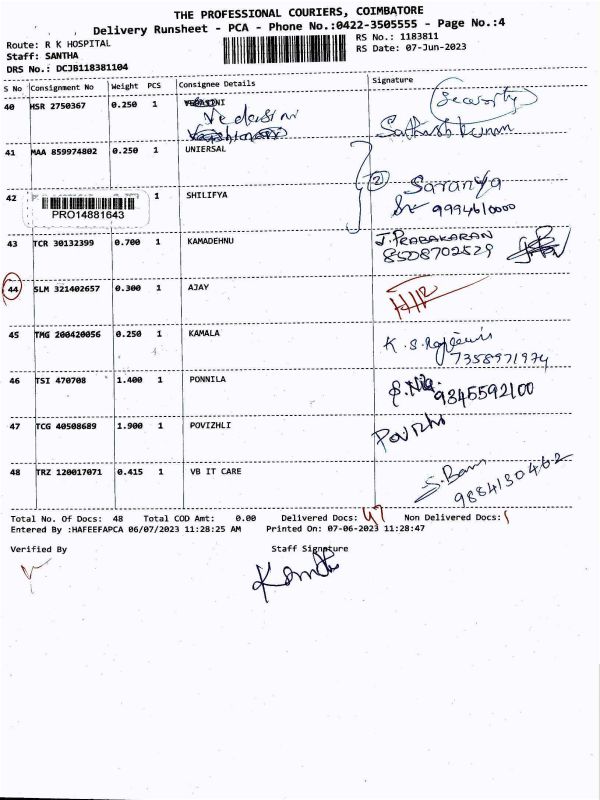 THE PROFESSIONAL COURIERS, COIMBATORE
Delivery Runsheet - PCA - Phone No.:0422-3505555 - Page No.:4
Route: R K HOSPITAL
Staff: SANTHA
DRS No.: DCJB118381104
RS No.: 1183811
RS Date: 07-Jun-2023
S No Consignment No Weight PCS Consignee Details Signature
40 HSR 2750367 0.250 1 Security
Vedasini
Sathish Kumar
41 MAA 859974802 0.250 1 UNIERSAL
42 PRO14881643 1 SHILIFYA 2 Saranya
9994610000
43 TCR 30132399 0.700 1 KAMADEHNU J. PRABAKARAN
8508702529
44 SLM 321402657 0.300 1 AJAY
45 TMG 200420056 0.250 1 KAMALA K. S.
7358971974
46 TSI 470708 1.400 1 PONNILA
9345592100
47 TCG 40508689 1.900 1 POVIZHLI Povizhi
48 TRZ 120017071 0.415 1 VB IT CARE
9884130462
Total No. Of Docs: 48 Total COD Amt: 0.00 Delivered Docs: 47 Non Delivered Docs: 1
Entered By :HAFEEFAPCA 06/07/2023 11:28:25 AM Printed On: 07-06-2023 11:28:47
Verified By Staff Signature